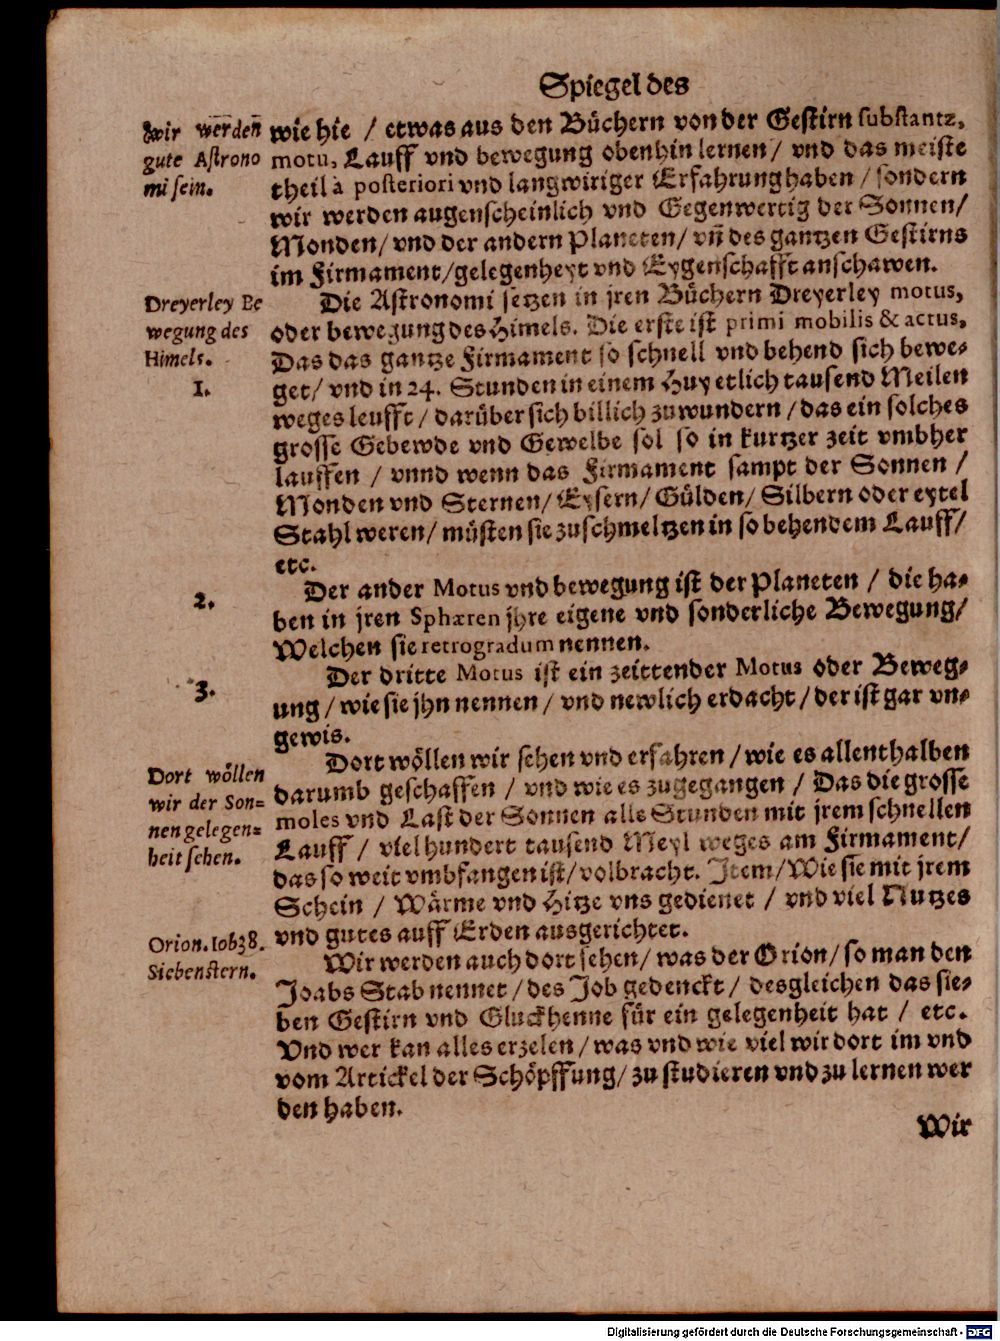 Spiegel des
Wir werdeñ
gute Astrono
mi sein.
wie hie / etwas aus den Büchern von der Gestirn substantz,
motu, Lauff vnd bewegung obenhin lernen / vnd das meiste
theil à posteriori vnd langwiriger Erfahrung haben / sondern
wir werden augenscheinlich vnd Gegenwertig der Sonnen /
Monden / vnd der andern Planeten / vñ des gantzen Gestirns
im Firmament / gelegenheyt vnd Eygenschafft anschawen.
Dreyerley Be
wegung des
Himels.
1.
Die Astronomi setzen in jren Büchern Dreyerley motus,
oder bewegung des Himels. Die erste ist primi mobilis & actus,
Das das gantze Firmament so schnell vnd behend sich bewe-
get / vnd in 24. Stunden in einem Huy etlich tausend Meilen
weges leufft / darüber sich billich zuwundern / das ein solches
grosse Gebewde vnd Gewelbe sol so in kurtzer zeit vmbher
lauffen / vnnd wenn das Firmament sampt der Sonnen /
Monden vnd Sternen / Eysern / Gülden / Silbern oder eytel
Stahl weren / müsten sie zuschmeltzen in so behendem Lauff /
etc.
2.
Der ander Motus vnd bewegung ist der Planeten / die ha-
ben in jren Sphæren jhre eigene vnd sonderliche Bewegung /
Welchen sie retrogradum nennen.
3.
Der dritte Motus ist ein zeittender Motus oder Beweg-
ung / wie sie jhn nennen / vnd newlich erdacht / der ist gar vn-
gewis.
Dort wöllen
wir der Son=
nen gelegen=
heit sehen.
Dort wöllen wir sehen vnd erfahren / wie es allenthalben
darumb geschaffen / vnd wie es zugegangen / Das die grosse
moles vnd Last der Sonnen alle Stunden mit jrem schnellen
Lauff / viel hundert tausend Meyl weges am Firmament /
das so weit vmbfangen ist / volbracht. Item / Wie sie mit jrem
Schein / Wärme vnd Hitze vns gedienet / vnd viel Nutzes
vnd gutes auff Erden ausgerichtet.
Orion. Iob 38.
Siebenstern.
Wir werden auch dort sehen / was der Orion / so man den
Joabs Stab nennet / des Job gedenckt / desgleichen das sie-
ben Gestirn vnd Gluckhenne für ein gelegenheit hat / etc.
Vnd wer kan alles erzelen / was vnd wie viel wir dort im vnd
vom Artickel der Schöpffung / zu studieren vnd zu lernen wer
den haben.
Wir
Digitalisierung gefördert durch die Deutsche Forschungsgemeinschaft - DFG